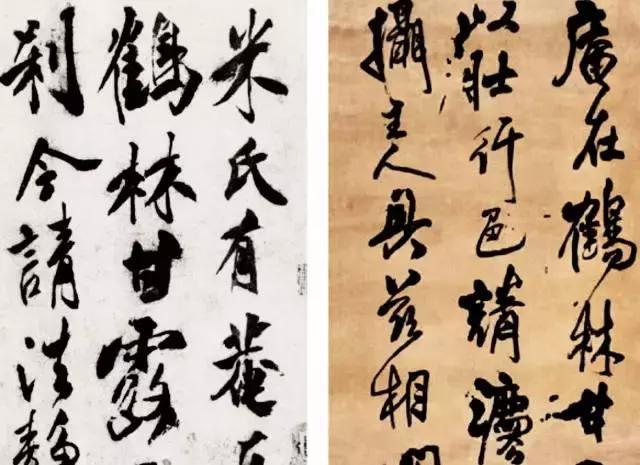 米氏有菴在
鶴林甘露
刹今請法
庵在鶴林甘
以壯行色請
攝主人具茲相